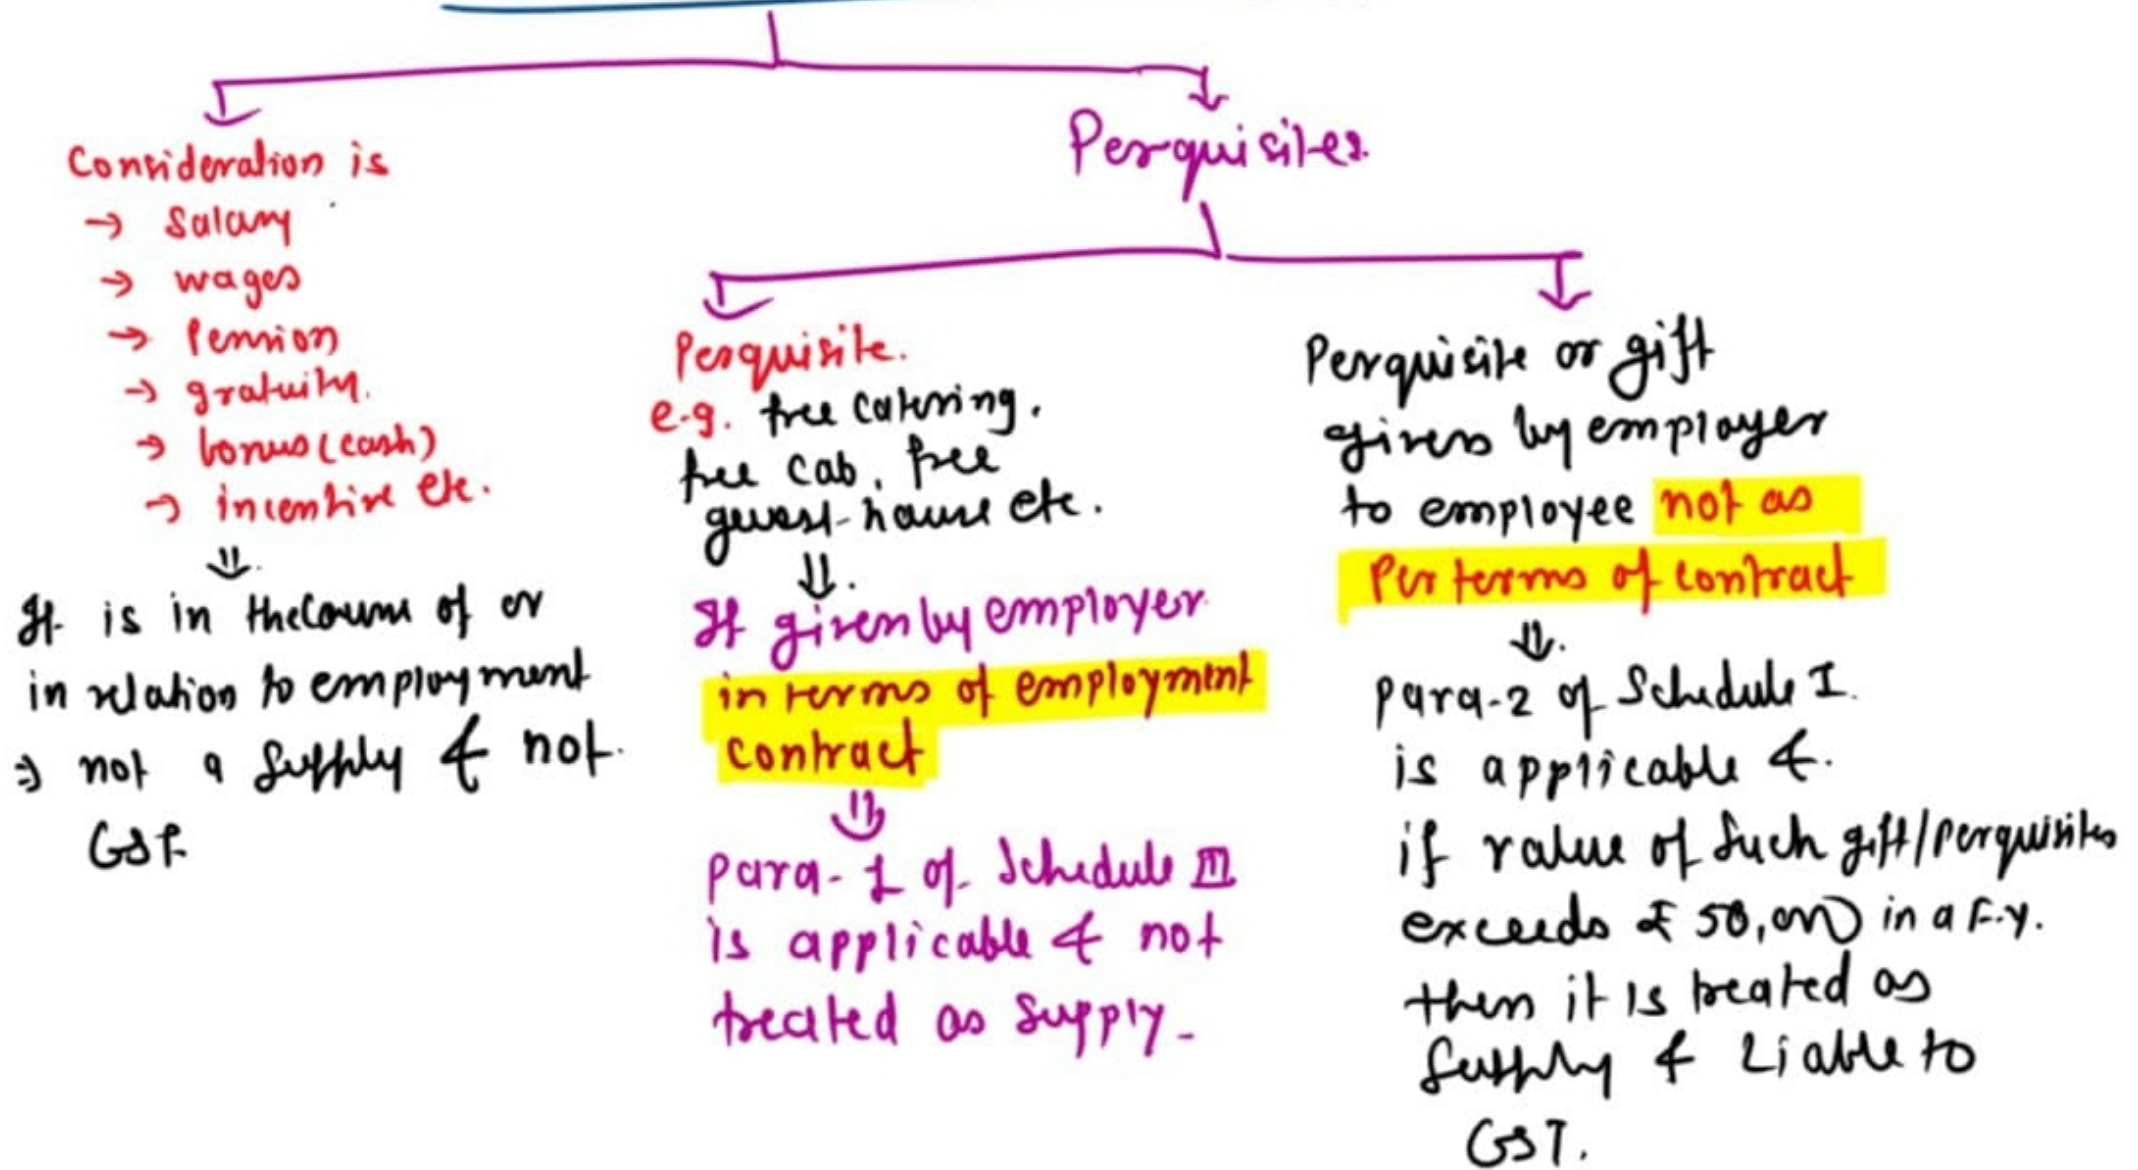 Consideration is
→ Salary
→ wages
→ Pension
→ gratuity.
→ bonus (cash)
→ incentive etc.
⇓
It is in the course of or
in relation to employment
⇒ not a supply & not
GST.
Perquisites
Perquisite.
e.g. free catering,
free cab, free
guest-house etc.
⇓
If given by employer
in terms of employment
contract
⇓
Para-1 of Schedule III
is applicable & not
treated as supply.
Perquisite or gift
given by employer
to employee not as
Per terms of contract
⇓
para-2 of Schedule I
is applicable &
if value of such gift/perquisites
exceeds ₹ 50,000 in a F.Y.
then it is treated as
supply & Liable to
GST.